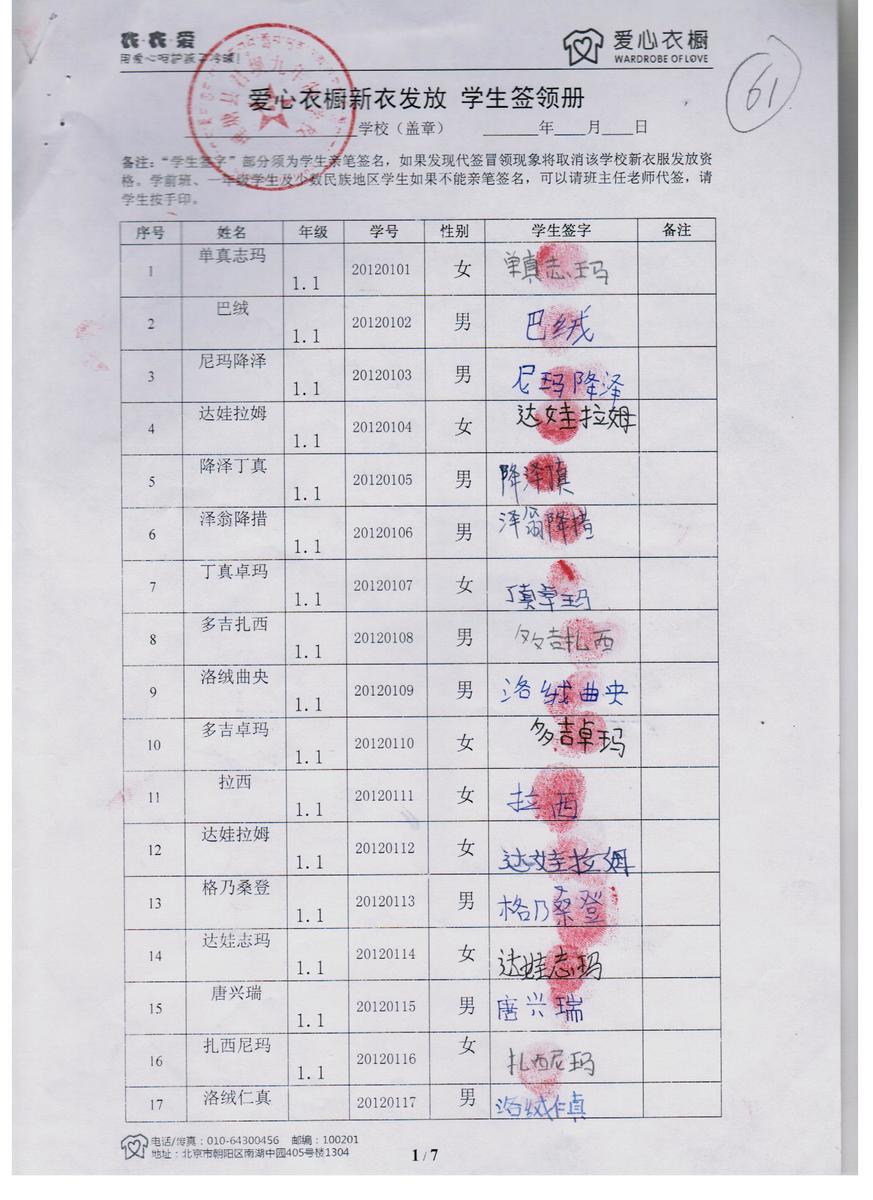 衣·衣·爱
用爱心呵护孩子冷暖!
爱心衣橱
WARDROBE OF LOVE
61
爱心衣橱新衣发放 学生签领册
学校（盖章） 年 月 日
备注："学生签字"部分须为学生亲笔签名，如果发现代签冒领现象将取消该学校新衣服发放资
格。学前班、一年级学生及少数民族地区学生如果不能亲笔签名，可以请班主任老师代签，请
学生按手印。
序号 姓名 年级 学号 性别 学生签字 备注
1 单真志玛 1.1 20120101 女 单真志玛
2 巴绒 1.1 20120102 男 巴绒
3 尼玛降泽 1.1 20120103 男 尼玛降泽
4 达娃拉姆 1.1 20120104 女 达娃拉姆
5 降泽丁真 1.1 20120105 男 降泽丁真
6 泽翁降措 1.1 20120106 男 泽翁降措
7 丁真卓玛 1.1 20120107 女 丁真卓玛
8 多吉扎西 1.1 20120108 男 多吉扎西
9 洛绒曲央 1.1 20120109 男 洛绒曲央
10 多吉卓玛 1.1 20120110 女 多吉卓玛
11 拉西 1.1 20120111 女 拉西
12 达娃拉姆 1.1 20120112 女 达娃拉姆
13 格乃桑登 1.1 20120113 男 格乃桑登
14 达娃志玛 1.1 20120114 女 达娃志玛
15 唐兴瑞 1.1 20120115 男 唐兴瑞
16 扎西尼玛 1.1 20120116 女 扎西尼玛
17 洛绒仁真 20120117 男 洛绒仁真
电话/传真：010-64300456 邮编：100201
地址：北京市朝阳区南湖中园405号楼1304
1 / 7